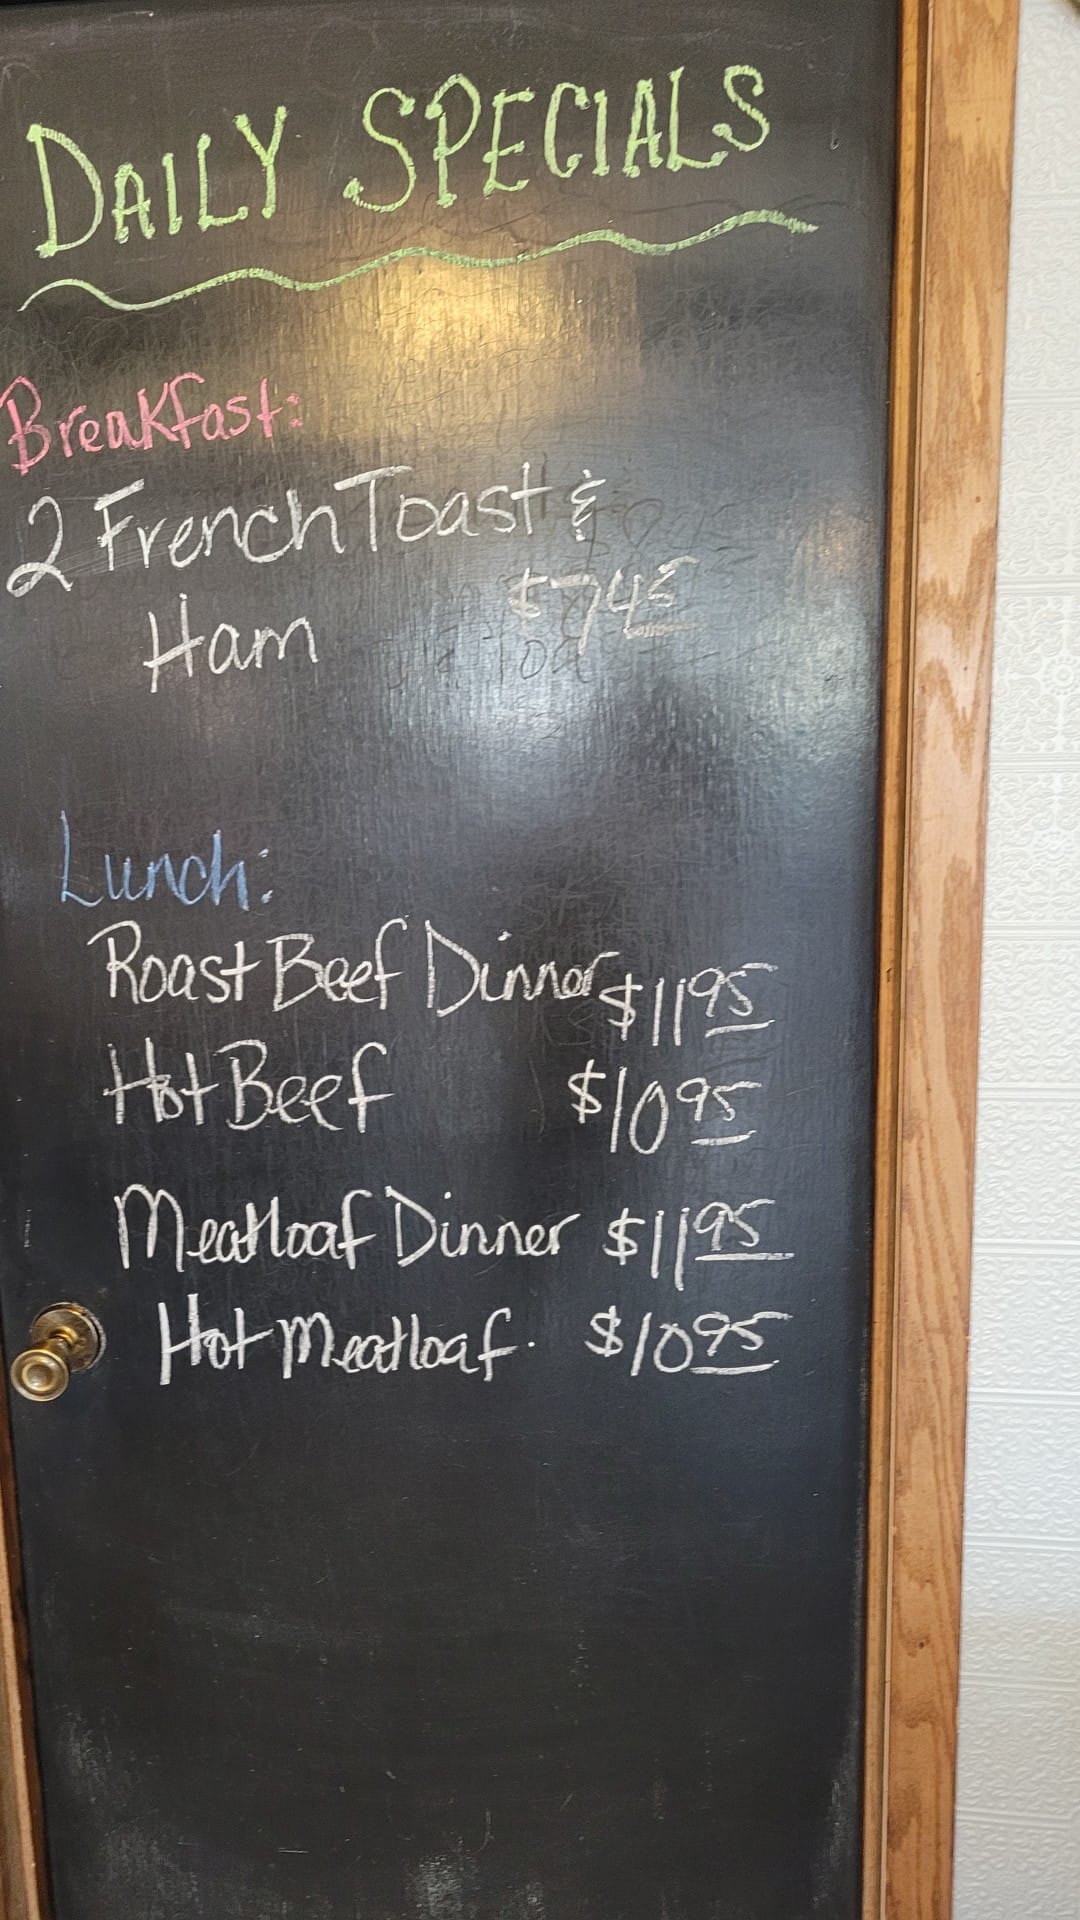 DAILY SPECIALS
Breakfast:
2 French Toast &
Ham $7.45
Lunch:
Roast Beef Dinner $11 95
Hot Beef $10 95
Meatloaf Dinner $11 95
Hot Meatloaf. $10 95